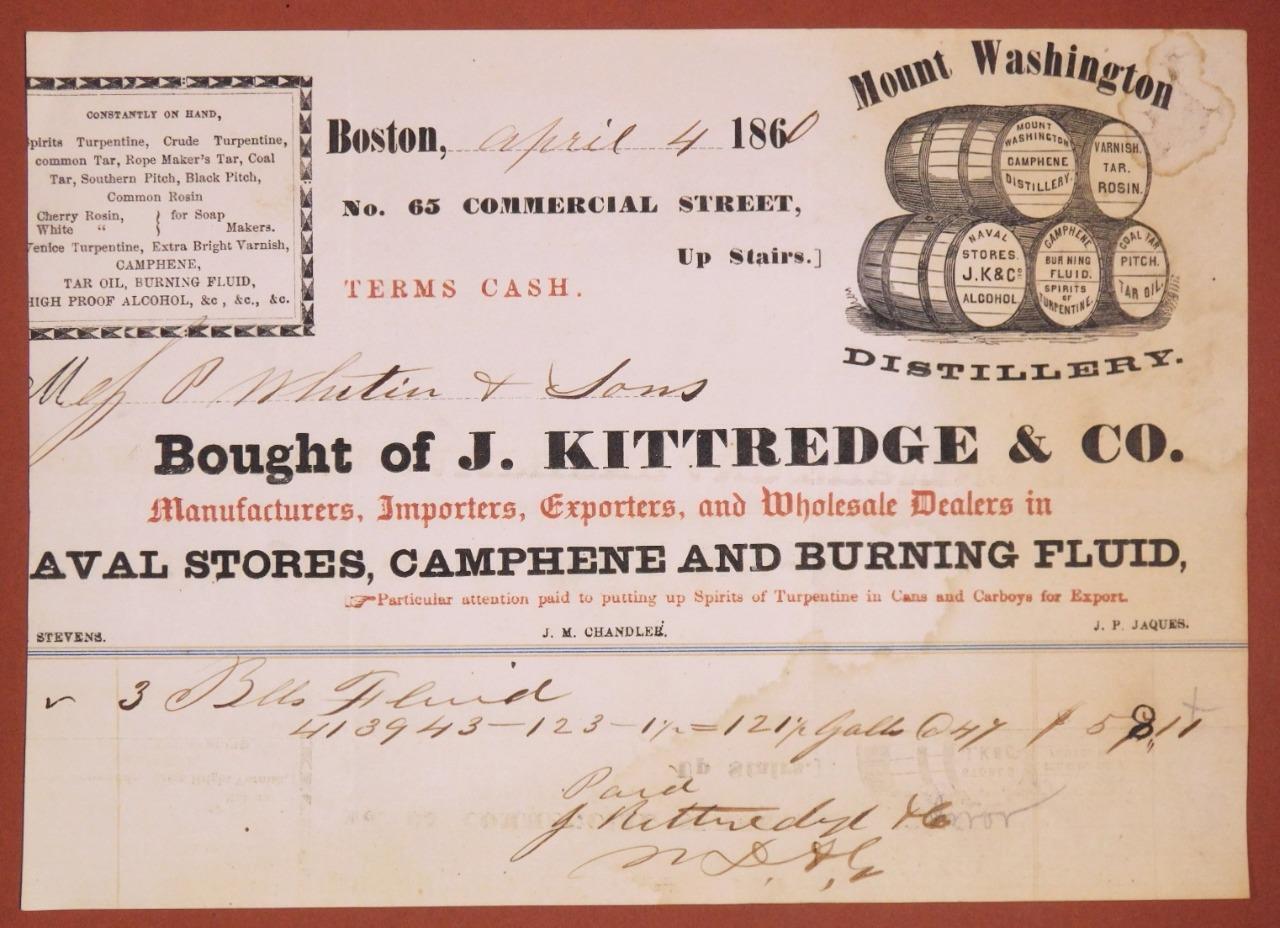 CONSTANTLY ON HAND,
pirits Turpentine, Crude Turpentine,
common Tar, Rope Maker's Tar, Coal
Tar, Southern Pitch, Black Pitch,
Common Rosin
Cherry Rosin, } for Soap
White " } Makers.
Venice Turpentine, Extra Bright Varnish,
CAMPHENE,
TAR OIL, BURNING FLUID,
HIGH PROOF ALCOHOL, &c, &c., &c.
Boston, april 4 1860
No. 65 COMMERCIAL STREET,
Up Stairs.]
TERMS CASH.
Mount Washington
MOUNT
WASHINGTON
CAMPHENE
DISTILLERY.
VARNISH.
TAR.
ROSIN.
NAVAL
STORES.
J.K&Co
ALCOHOL
CAMPHENE
BURNING
FLUID.
SPIRITS
OF
TURPENTINE.
COAL TAR
PITCH.
TAR OIL.
DISTILLERY.
Mess P Whitin & Sons
Bought of J. KITTREDGE & CO.
Manufacturers, Importers, Exporters, and Wholesale Dealers in
AVAL STORES, CAMPHENE AND BURNING FLUID,
Particular attention paid to putting up Spirits of Turpentine in Cans and Carboys for Export.
STEVENS. J. M. CHANDLER. J. P. JAQUES.
3 Blls Fluid
41 39 43 - 123 - 1½ = 121½ Galls @ 47 $ 5 11
Paid
J Kittredge & Co